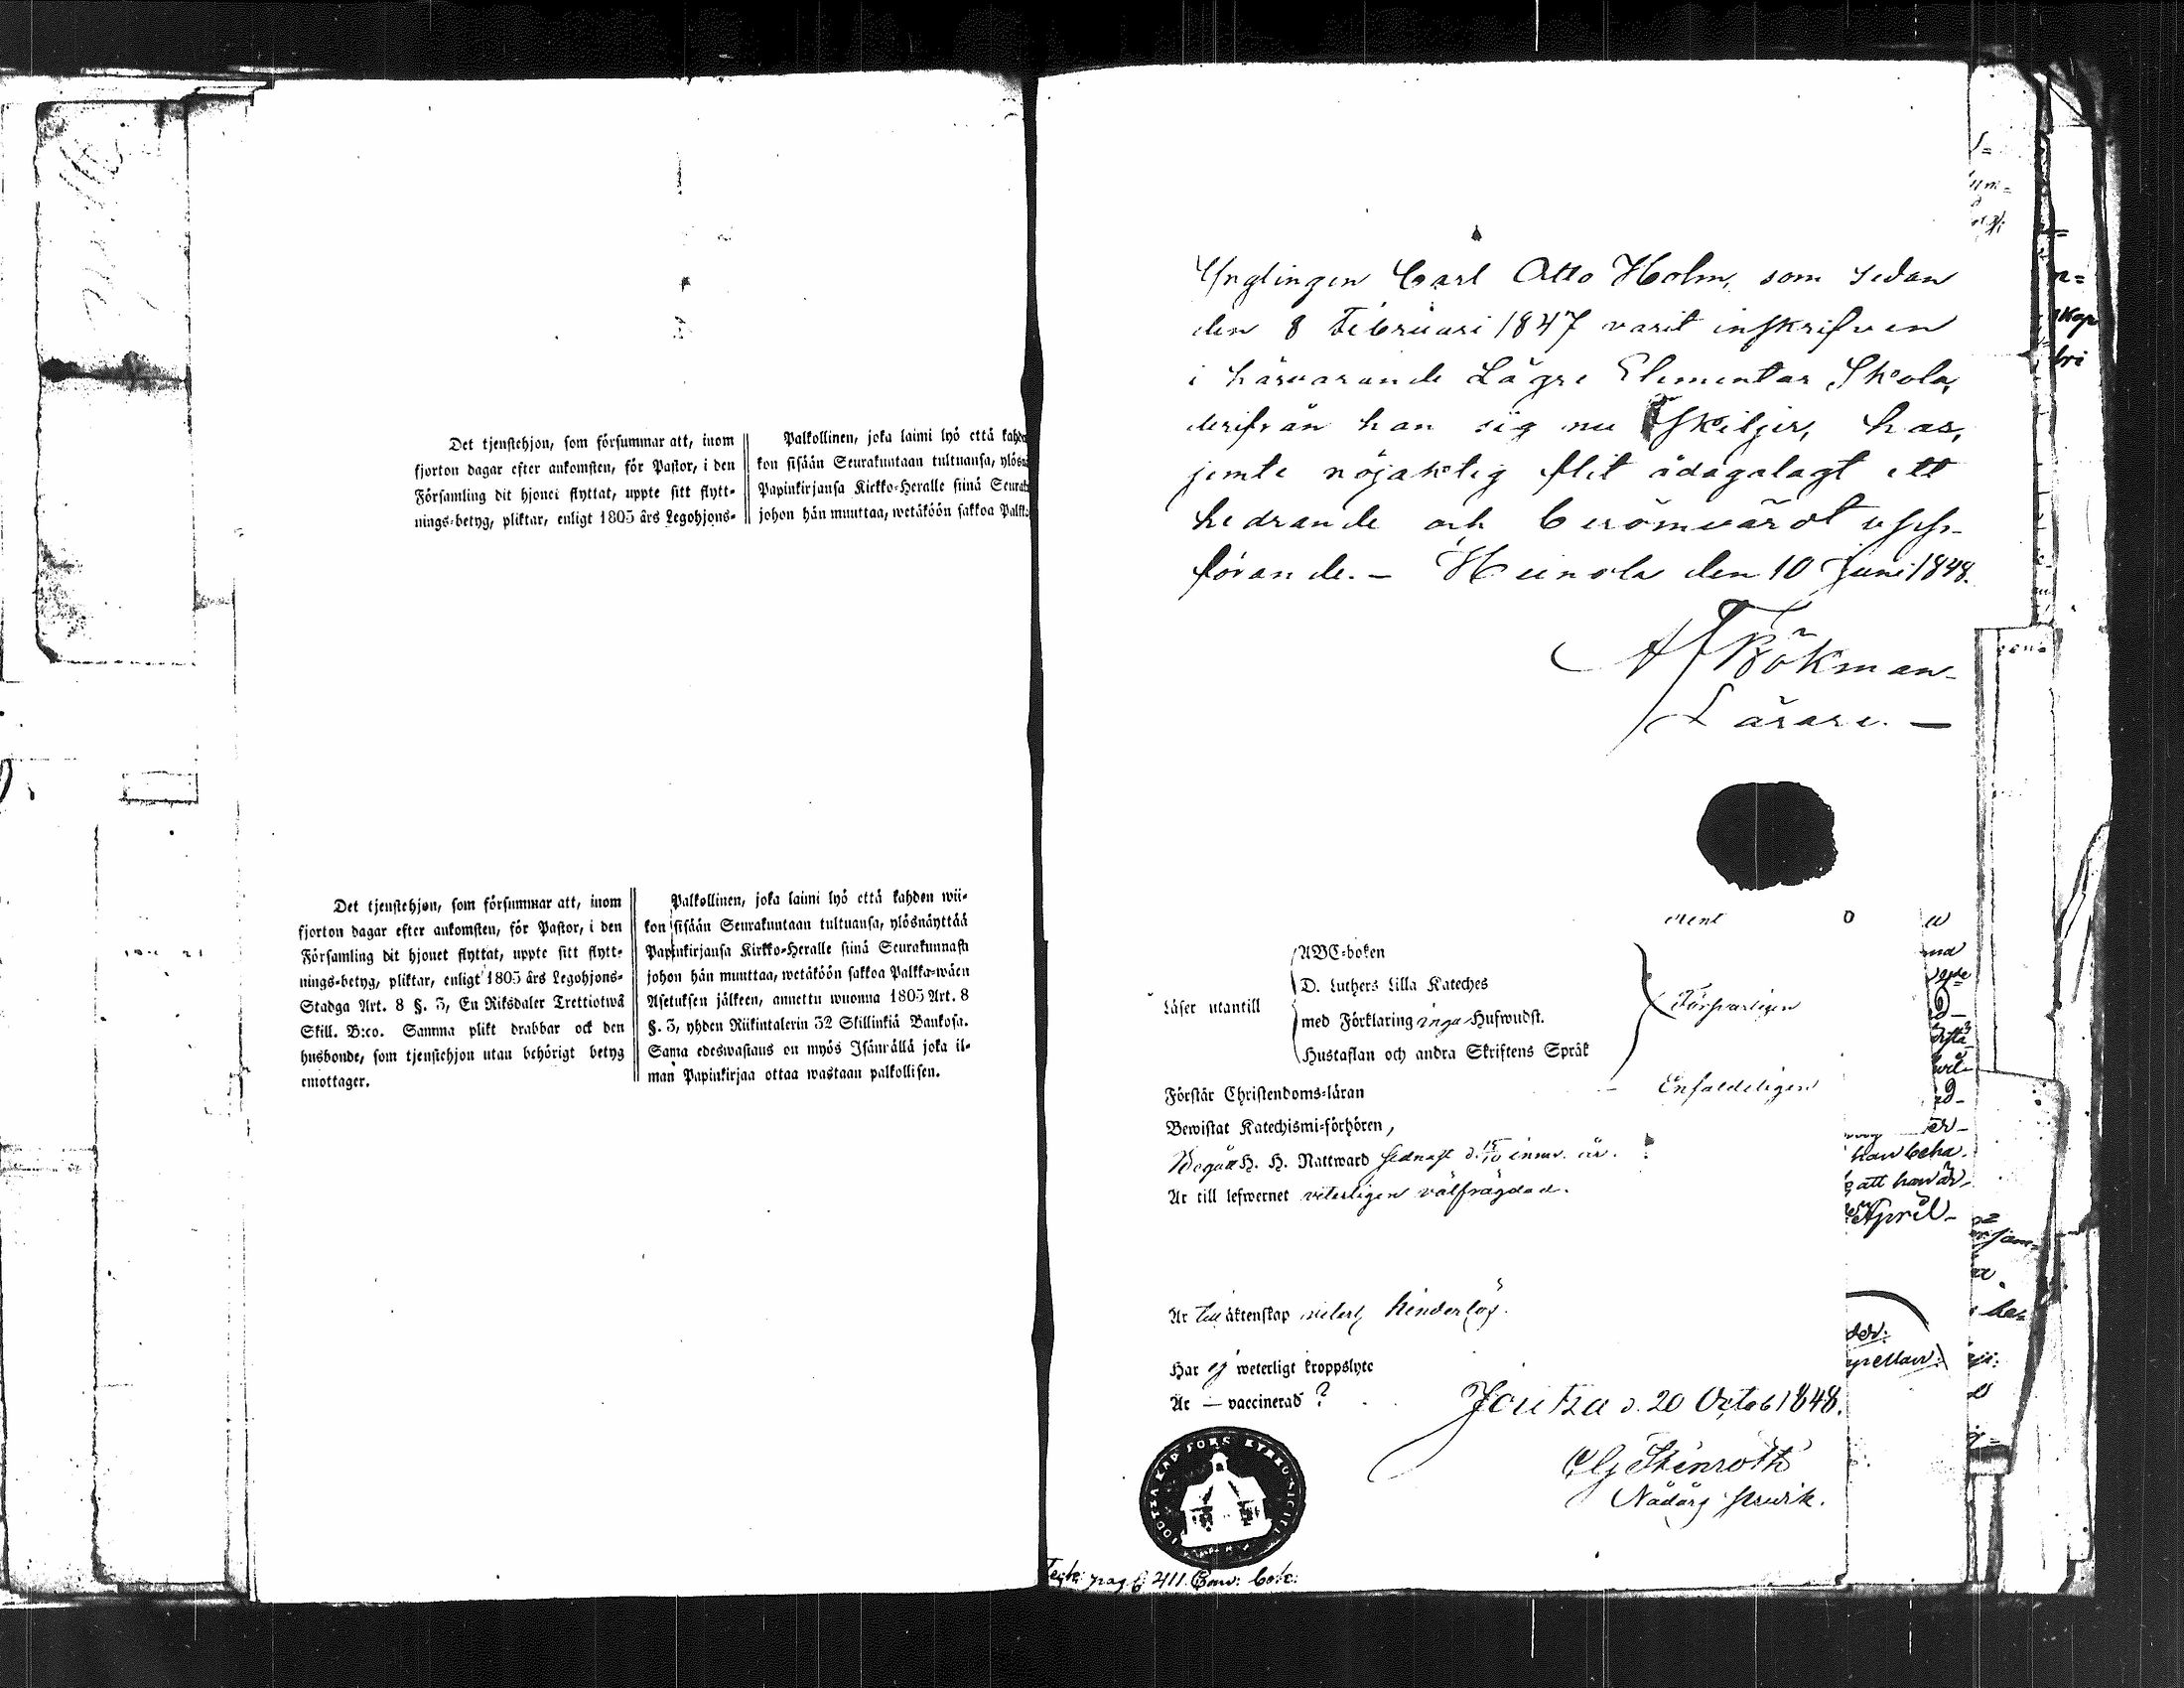 Det tjenstehjon, som försummar att, inom
fjorton dagar efter ankomsten, för Pastor, i den
Församling dit hjonet flyttat, uppte sitt flytt-
nings-betyg, pliktar, enligt 1805 års Legohjons-
Palkollinen, joka laimi lyö että
kon sisään Seurakuntaan tultuansa,
Papinkirjansa Kirkko-Heralle siinä
johon hän muuttaa, wetäköön sakkoa
Det tjenstehjon, som försummar att, inom
fjorton dagar efter ankomsten, för Pastor, i den
Församling dit hjonet flyttat, uppte sitt flytt-
nings-betyg, pliktar, enligt 1805 års Legohjons-
Stadga Art. 8 §. 3, En Riksdaler Trettiotwå
Skill. B:co. Samma plikt drabbar ock den
husbonde, som tjenstehjon utan behörigt betyg
emottager.
Palkollinen, joka laimi lyö että kahden wii-
kon sisään Seurakuntaan tultuansa, ylösnäyttää
Papinkirjansa Kirkko-Heralle siinä Seurakunnasn
johon hän muuttaa, wetäköön sakkoa Palkka-wäen
Asetuksen jälkeen, annettu wuonna 1805 Art. 8
§. 3, yhden Riikintalerin 32 Skillinkiä Bankosa.
Sama edeswastaus on myös Isännällä joka il-
man Papinkirjaa ottaa wastaan palkollisen.
Ynglingen Carl Otto Holm, som sedan
den 8 Februari 1847 varit inskrifven
i härvarande Lägre Elementar Skola,
derifrån han sig nu skiljer, har,
jemte nöjaktig flit ådagalagt ett
hedrande och berömvärdt upp-
förande. – Heinola den 10 Juni 1848.
Bökman
Lärare. –
Läser utantill
ABC-boken
D. Luthers Lilla Kateches
med Förklaring inga Hufwudst.
Hustaflan och andra Skriftens Språk
Försvarligen
Förstår Christendoms-läran Enfaldeligen
Bewistat Katechismi-förhören,
Begått H. H. Nattward sednast d. 15/10 innev. år.
Är till lefwernet veterligen välfrägdad.
Är till äktenskap veterl. hinderlös.
Har ej weterligt kroppslyte
Är — vaccinerad ?
Joutza d. 20 Octob 1848.
Stenroth
Nådårs
pag 411
han beha.
att han är
April